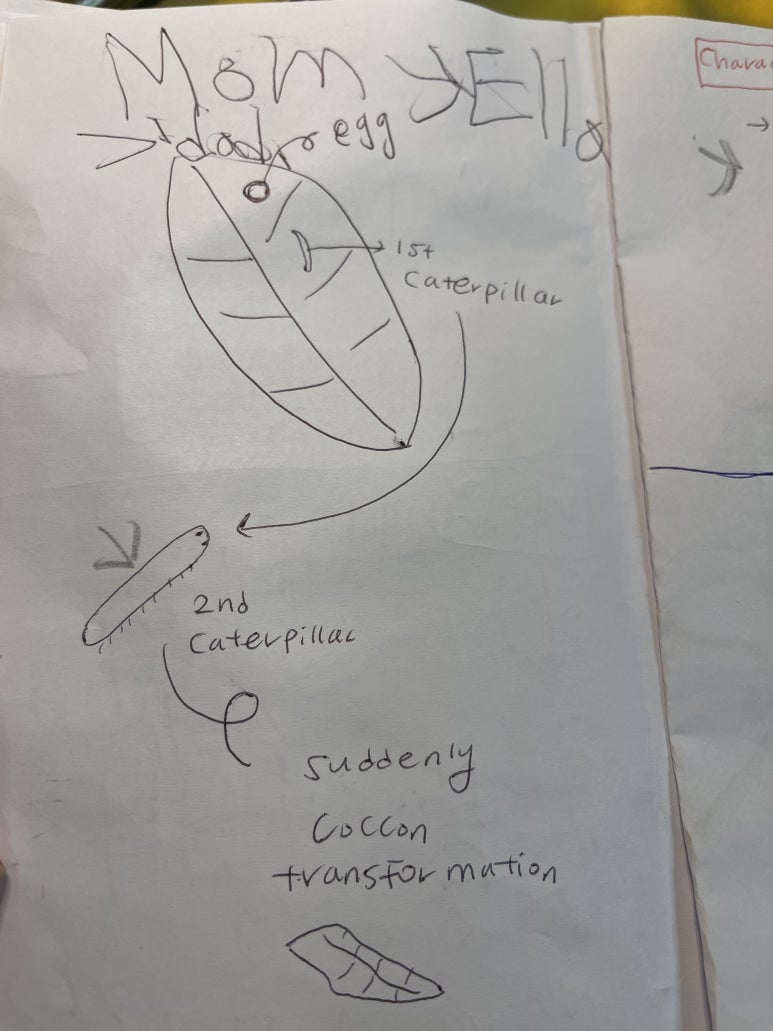 Mom
Ella
dad
egg
1st
caterpillar
2nd
caterpillar
suddenly
Coccon
transformation
Charac